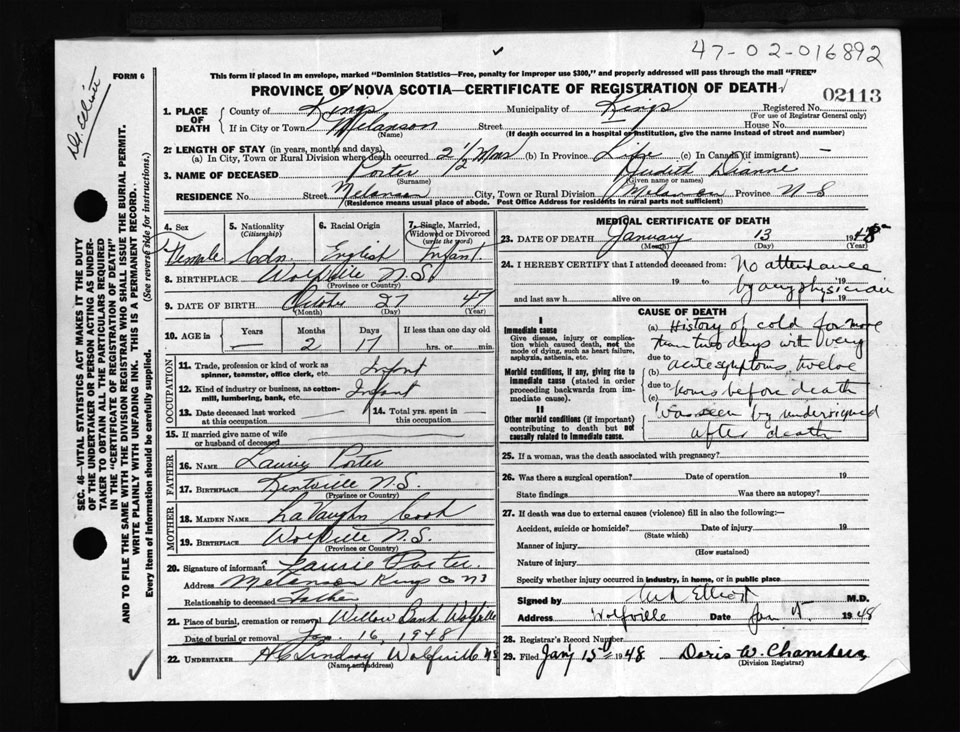 47-02-016892
Dr. Elliott
FORM 6
This form if placed in an envelope, marked "Dominion Statistics—Free, penalty for improper use $300," and properly addressed will pass through the mail "FREE"
PROVINCE OF NOVA SCOTIA—CERTIFICATE OF REGISTRATION OF DEATH
02113
1. PLACE OF DEATH County of Kings Municipality of Kings Registered No.
(For use of Registrar General only)
If in City or Town Melanson Street House No.
(Name) (If death occurred in a hospital or institution, give the name instead of street and number)
2. LENGTH OF STAY (in years, months and days)
(a) In City, Town or Rural Division where death occurred 2 1/2 Mos (b) In Province Life (c) In Canada (if immigrant) —
3. NAME OF DECEASED Porter Judith Dianne
(Surname) (Given name or names)
RESIDENCE No. Street Melanson City, Town or Rural Division Melanson Province N S
(Residence means usual place of abode. Post Office Address for residents in rural parts not sufficient)
4. Sex 5. Nationality (Citizenship) 6. Racial Origin 7. Single, Married, Widowed or Divorced (write the word)
Female Cdn. English Infant.
8. BIRTHPLACE Wolfville N.S.
(Province or Country)
9. DATE OF BIRTH October 27 47
(Month) (Day) (Year)
10. AGE in Years Months Days If less than one day old
— 2 17 hrs. or min.
OCCUPATION
11. Trade, profession or kind of work as spinner, teamster, office clerk, etc. Infant
12. Kind of industry or business, as cotton-mill, lumbering, bank, etc. Infant
13. Date deceased last worked at this occupation 14. Total yrs. spent in this occupation
15. If married give name of wife or husband of deceased
FATHER
16. NAME Laurie Porter
17. BIRTHPLACE Kentville N.S.
(Province or Country)
MOTHER
18. MAIDEN NAME LaVaughn Cook
19. BIRTHPLACE Wolfville N.S.
(Province or Country)
20. Signature of informant Laurie Porter
Address Melanson Kings Co NS
Relationship to deceased Father
21. Place of burial, cremation or removal Willow Bank Wolfville
Date of burial or removal Jan. 16, 1948
22. UNDERTAKER H C Lindsay Wolfville NS
(Name and address)
MEDICAL CERTIFICATE OF DEATH
23. DATE OF DEATH January 13 1948
(Month) (Day) (Year)
24. I HEREBY CERTIFY that I attended deceased from: No attendance
19 to by any physician 19
and last saw h alive on 19
CAUSE OF DEATH
I
Immediate cause
Give disease, injury or complication which caused death, not the mode of dying, such as heart failure, asphyxia, asthenia, etc.
Morbid conditions, if any, giving rise to immediate cause (stated in order proceeding backwards from immediate cause).
II
Other morbid conditions (if important) contributing to death but not causally related to immediate cause.
(a) History of cold for more
than two days with very
due to
(b) acute symptoms, twelve
due to
(c) hours before death
Was seen by undersigned
after death
25. If a woman, was the death associated with pregnancy?
26. Was there a surgical operation? Date of operation 19
State findings Was there an autopsy?
27. If death was due to external causes (violence) fill in also the following:—
Accident, suicide or homicide? Date of injury 19
(State which)
Manner of injury
(How sustained)
Nature of injury
Specify whether injury occurred in industry, in home, or in public place
Signed by Elliott M.D.
Address Wolfville Date Jan 1948
28. Registrar's Record Number
29. Filed Jan 15th 1948 Doris W. Chambers
(Division Registrar)
SEC. 46—VITAL STATISTICS ACT MAKES IT THE DUTY
OF THE UNDERTAKER OR PERSON ACTING AS UNDER-
TAKER TO OBTAIN ALL THE PARTICULARS REQUIRED
IN THE "CERTIFICATE OF REGISTRATION OF DEATH"
AND TO FILE THE SAME WITH THE DIVISION REGISTRAR WHO SHALL ISSUE THE BURIAL PERMIT.
WRITE PLAINLY WITH UNFADING INK. THIS IS A PERMANENT RECORD.
Every item of information should be carefully supplied. (See reverse side for instructions.)